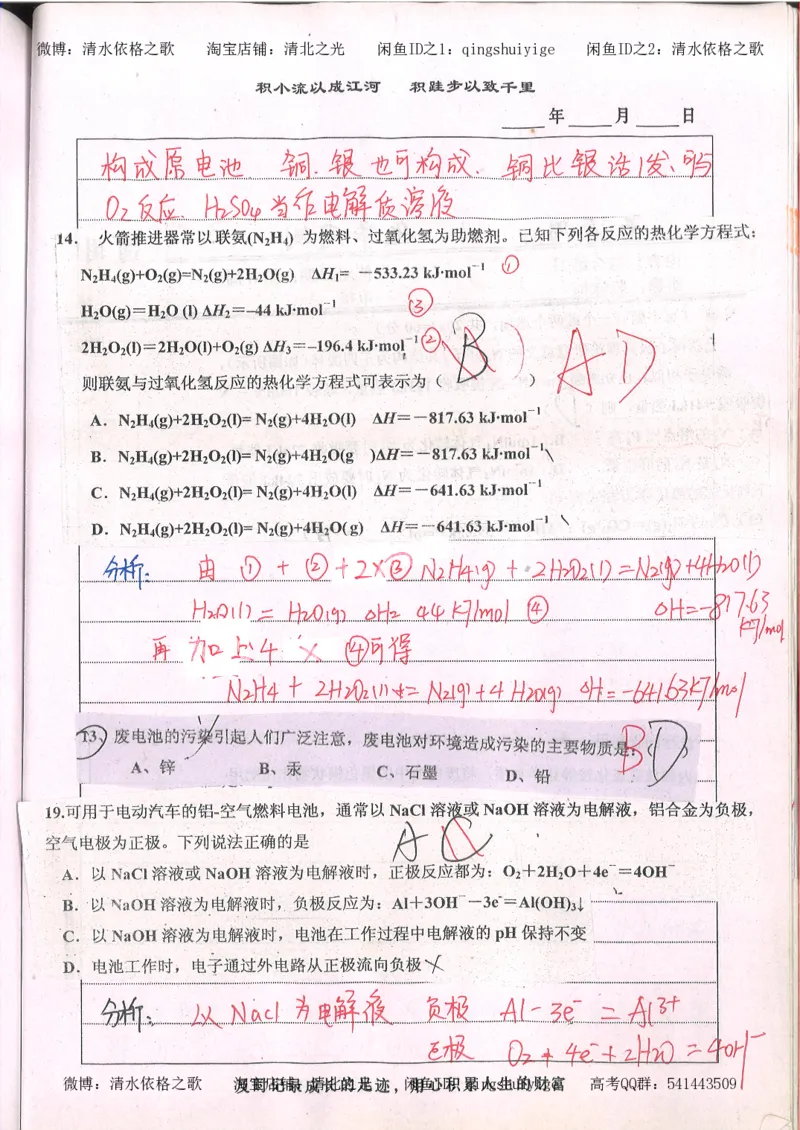 微博：清水依格之歌 淘宝店铺：清北之光 闲鱼ID之1：qingshuiyige 闲鱼ID之2：清水依格之歌
积小流以成江河 积跬步以致千里
年 月 日
构成原电池. 铜.银也可构成. 铜比银活泼、可与
O₂反应. H₂SO₄当作电解质溶液
14. 火箭推进器常以联氨(N₂H₄) 为燃料、过氧化氢为助燃剂。已知下列各反应的热化学方程式：
N₂H₄(g)+O₂(g)=N₂(g)+2H₂O(g) ΔH₁= －533.23 kJ·mol⁻¹ ①
H₂O(g)＝H₂O (l) ΔH₂=–44 kJ·mol⁻¹ ③
2H₂O₂(l)＝2H₂O(l)+O₂(g) ΔH₃=–196.4 kJ·mol⁻¹ ②
则联氨与过氧化氢反应的热化学方程式可表示为（ B ） A D
A．N₂H₄(g)+2H₂O₂(l)= N₂(g)+4H₂O(l) ΔH＝－817.63 kJ·mol⁻¹
B．N₂H₄(g)+2H₂O₂(l)= N₂(g)+4H₂O(g )ΔH＝－817.63 kJ·mol⁻¹
C．N₂H₄(g)+2H₂O₂(l)= N₂(g)+4H₂O(l) ΔH＝－641.63 kJ·mol⁻¹
D．N₂H₄(g)+2H₂O₂(l)= N₂(g)+4H₂O(g) ΔH＝－641.63 kJ·mol⁻¹
分析： 由 ① + ② + 2×③ N₂H₄(g) + 2H₂O₂(l) = N₂(g)+4H₂O(l)
H₂O(l) = H₂O(g) ΔH₂ 44 KJ/mol ④ ΔH=-817.63
KJ/mol
再加上4 × ④可得
N₂H₄ + 2H₂O₂(l) = N₂(g)+4 H₂O(g) ΔH=-641.63KJ/mol
13、废电池的污染引起人们广泛注意，废电池对环境造成污染的主要物质是：B (D)
A、锌 B、汞 C、石墨 D、铅
19.可用于电动汽车的铝-空气燃料电池，通常以 NaCl 溶液或 NaOH 溶液为电解液，铝合金为负极，
空气电极为正极。下列说法正确的是 A C
A．以 NaCl 溶液或 NaOH 溶液为电解液时，正极反应都为：O₂＋2H₂O＋4e⁻＝4OH⁻
B．以 NaOH 溶液为电解液时，负极反应为：Al＋3OH⁻－3e⁻＝Al(OH)₃↓
C．以 NaOH 溶液为电解液时，电池在工作过程中电解液的 pH 保持不变
D．电池工作时，电子通过外电路从正极流向负极
分析： 以 Nacl 为电解液 负极 Al－3e⁻ = Al³⁺
正极 O₂ + 4e⁻ + 2H₂O = 4OH⁻
微博：清水依格之歌 高考QQ群：541443509